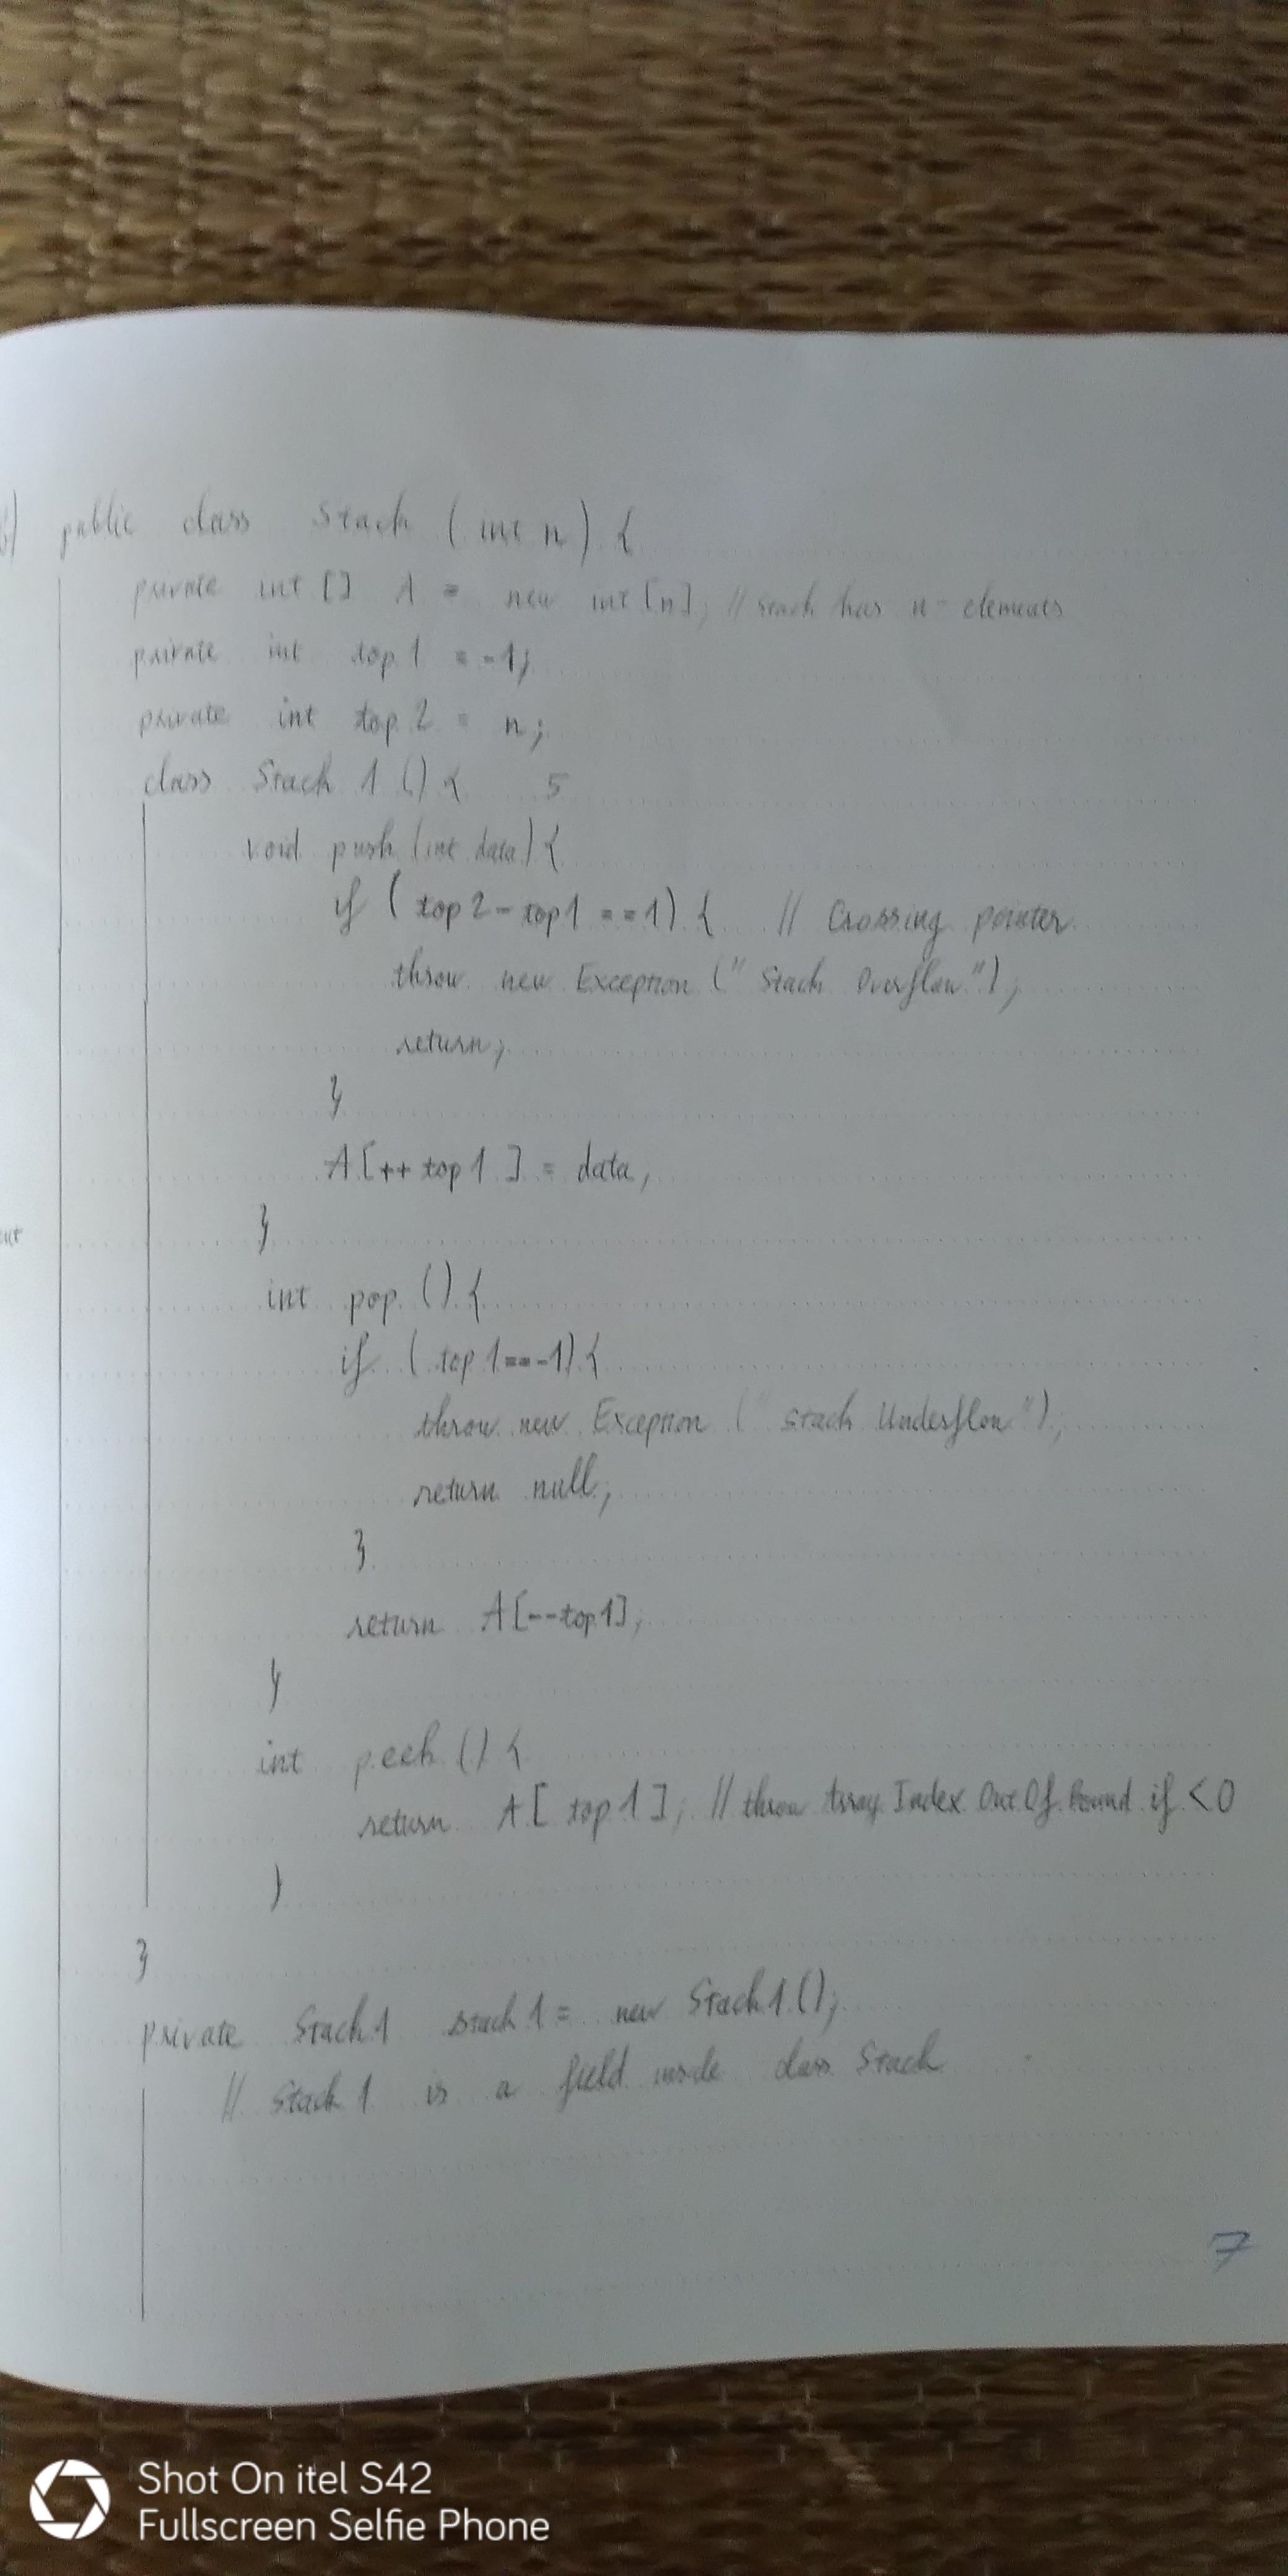 public class Stack (int n) {
private int [] A = new int [n]; // Stack has n-elements
private int top1 = -1;
private int top2 = n;
class Stack 1 () { 5
void push (int data) {
if ( top2 - top1 == 1) { // Crossing pointer
throw new Exception (" Stack Overflow");
return;
}
A[++ top1 ] = data;
}
int pop () {
if ( top1 == -1) {
throw new Exception (" Stack Underflow");
return null;
}
return A[--top1];
}
int peek () {
return A [ top1 ]; // throw Array Index Out Of Bound if < 0
}
}
private Stack1 stack1 = new Stack1 ();
// Stack 1 is a field inside class Stack
7
Shot On itel S42
Fullscreen Selfie Phone